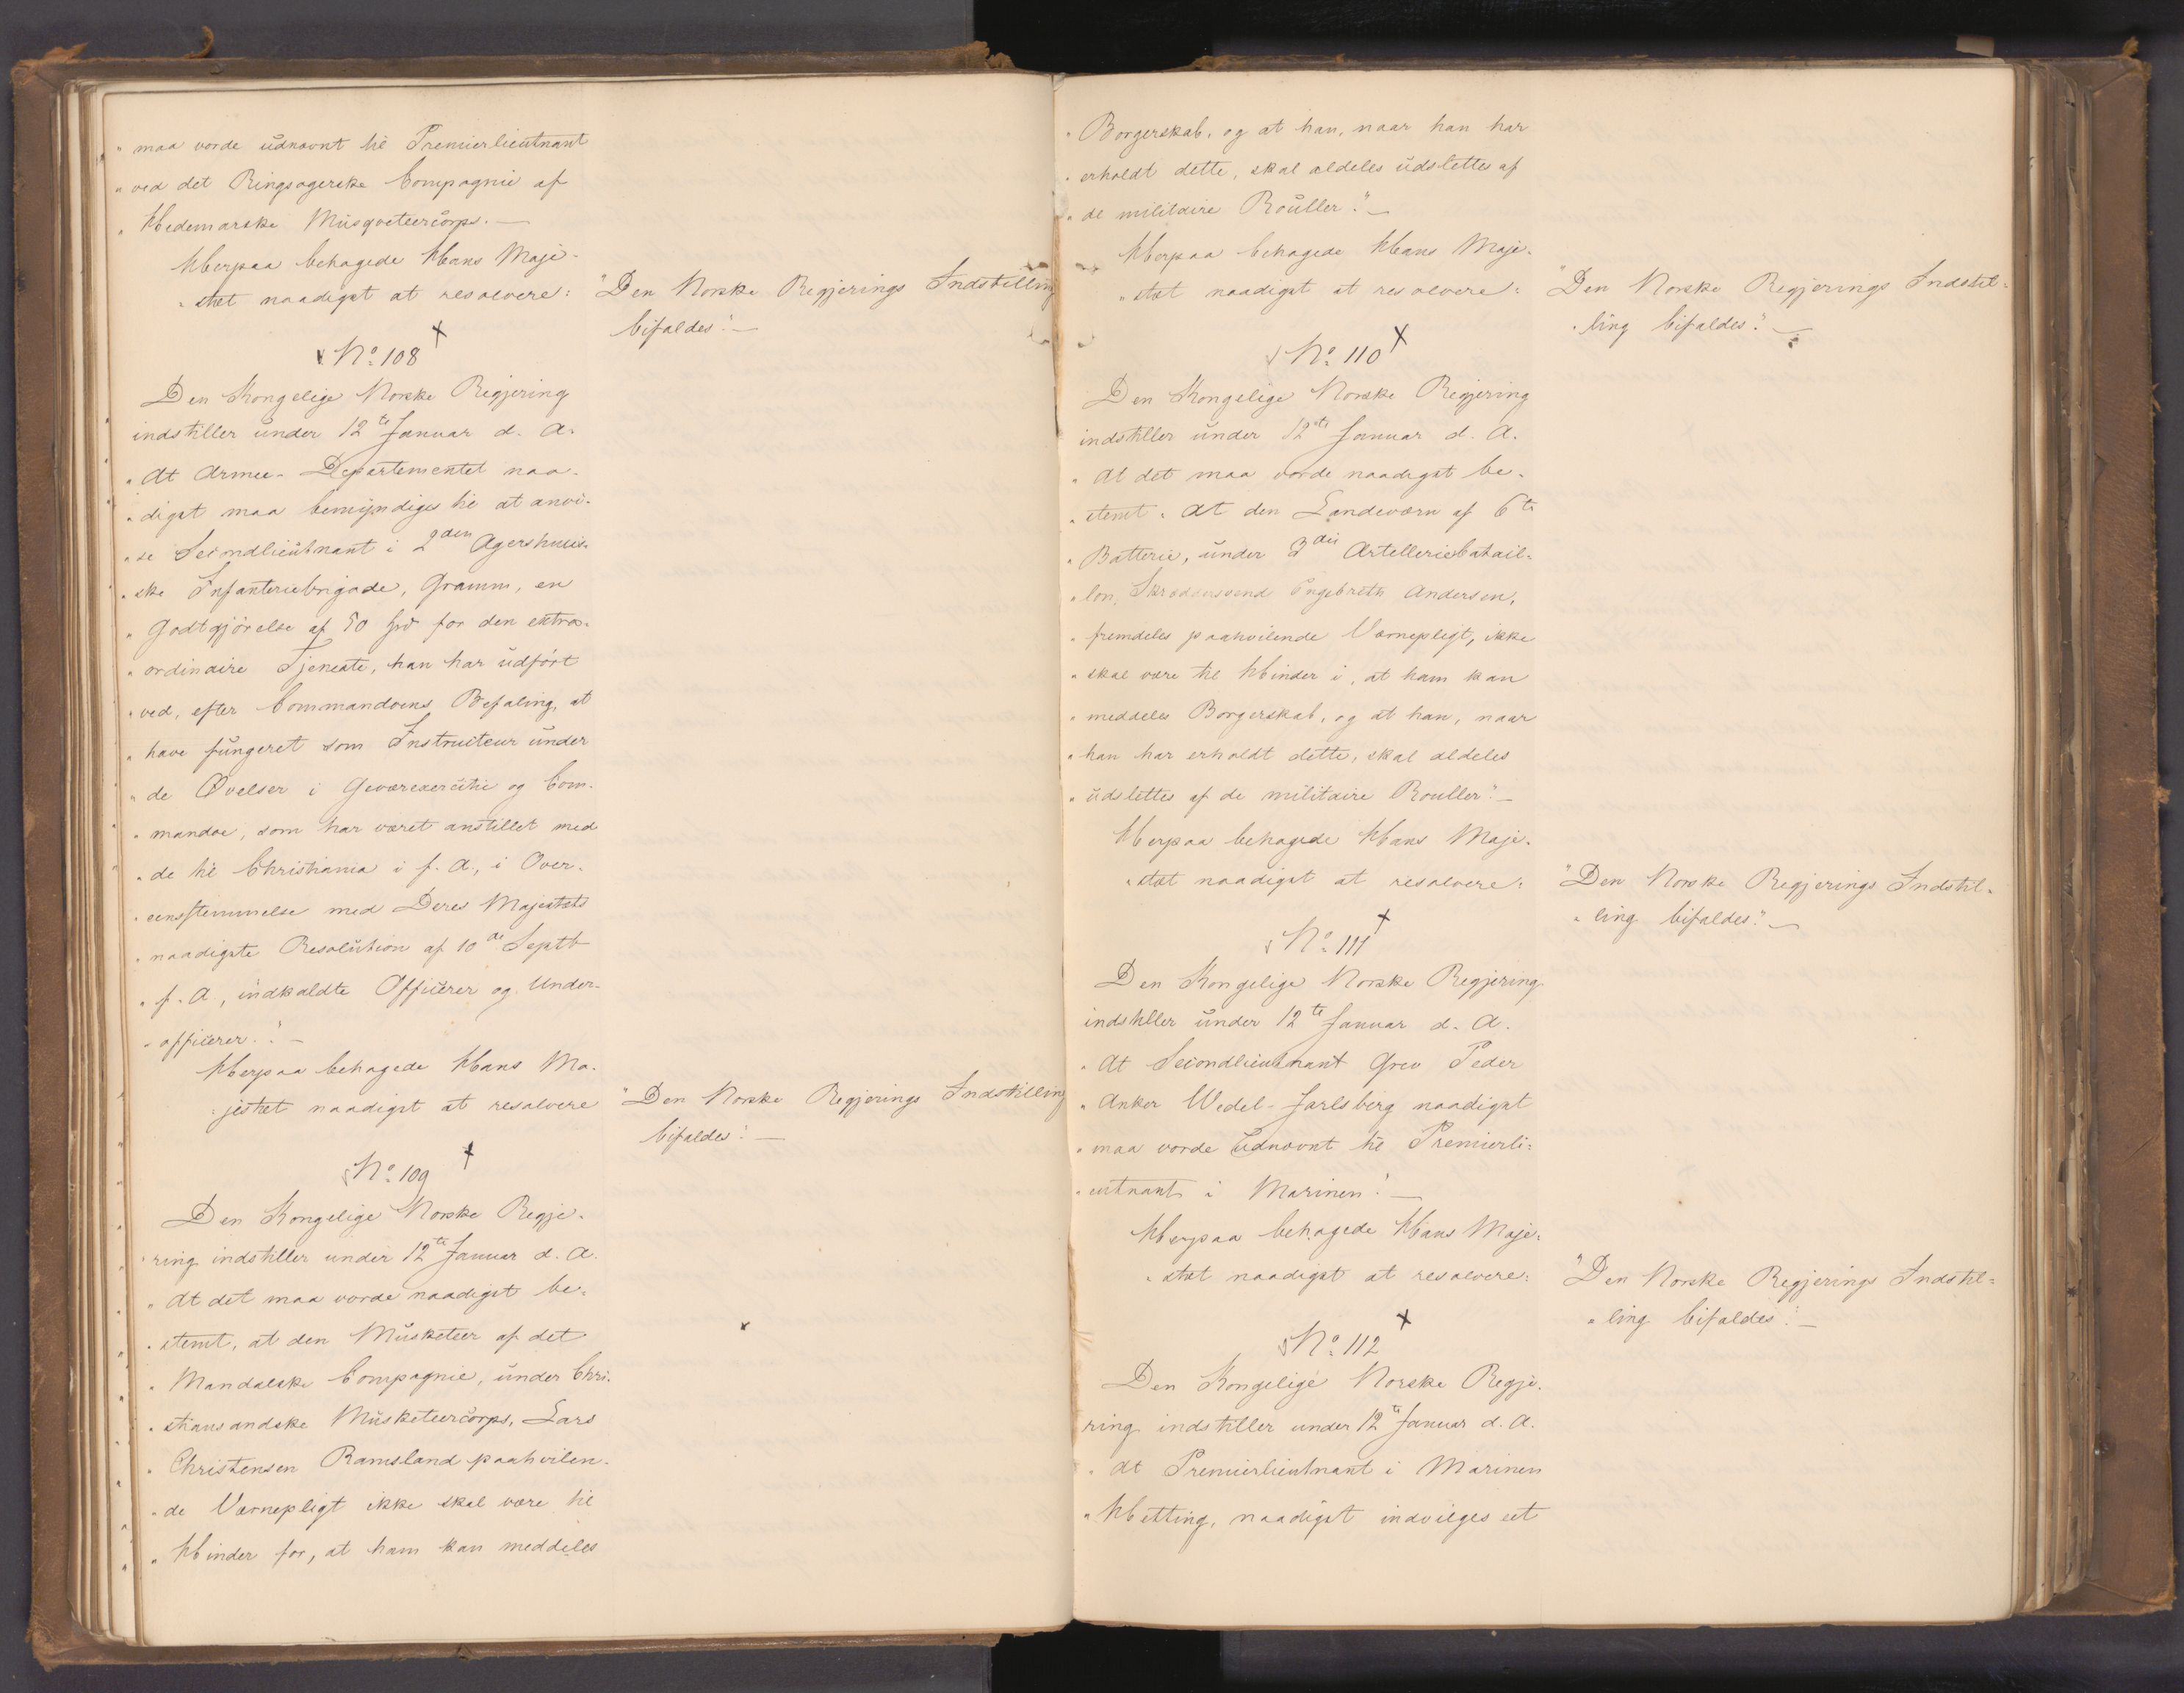 „maa vorde udnævnt til Premierlieutnant
„ved det Ringsagerske Compagnie af
„Hedemarske Musqveteercorps. —
Herpaa behagede Hans Maje-
„stæt naadigst at resolvere:
"Den Norske Regjerings Indstilling
bifaldes". —
No. 108
Den Kongelige Norske Regjering
indstiller under 12te Januar d. A.
„At Armee-Departementet naa-
„digst maa bemyndiges til at anvi-
„se Secondlieutnant i 2den Agershuus-
„ske Infanteriebrigade, Gramm, en
„Godtgjörelse af 50 for den extra-
„ordinaire Tjeneste, han har udfört
„ved, efter Commandoens Befaling, at
„have fungeret som Instructeur under
„de Øvelser i Geværexercitie og Com-
„mandoe, som har været anstillet med
„de til Christiania i f. A., i Over-
„eensstemmelse med Deres Majestæts
„naadigste Resolution af 10de Septb
„f. A., indkaldte Officerer og Under-
„officerer". —
Herpaa behagede Hans Ma-
„jestæt naadigst at resolvere
"Den Norske Regjerings Indstilling
bifaldes". —
No. 109
Den Kongelige Norske Regje-
ring indstiller under 12te Januar d. A.
„At det maa vorde naadigst be-
„stemt, at den Musketeer af det
„Mandalske Compagnie, under Chri-
„stiansandske Musketeercorps, Lars
„Christensen Ramsland paahvilen-
„de Værnepligt ikke skal være til
„Hinder for, at ham kan meddeles
„Borgerskab, og at han, naar han har
„erholdt dette, skal aldeles udslettes af
„de militaire Rouller". —
Herpaa behagede Hans Maje-
„stæt naadigst at resolvere:
"Den Norske Regjerings Indstil-
„ling bifaldes". —
No. 110
Den Kongelige Norske Regjering
indstiller under 12te Januar d. A.
„At det maa vorde naadigst be-
„stemt. At den Landeværn af 6te
„Batterie, under 3die Artilleriebatail-
„lon, Skræddersvend Engebreth Andersen,
„fremdeles paahvilende Værnepligt, ikke
„skal være til Hinder i, at ham kan
„meddeles Borgerskab, og at han, naar
„han har erholdt dette, skal aldeles
„udslettes af de militaire Rouller". —
Herpaa behagede Hans Maje-
„stæt naadigst at resolvere:
"Den Norske Regjerings Indstil-
„ling bifaldes". —
No. 111
Den Kongelige Norske Regjering
indstiller under 12te Januar d. A.
„At Secondlieutnant Grev Peder
„Anker Wedel-Jarlsberg naadigst
„maa vorde udnævnt til Premierli-
„eutnant i Marinen". —
Herpaa behagede Hans Maje-
„stæt naadigst at resolvere:
"Den Norske Regjerings Indstil-
„ling bifaldes". —
No. 112
Den Kongelige Norske Regje-
ring indstiller under 12te Januar d. A.
„At Premierlieutnant i Marinen
„Hetting, naadigst indvilges eet